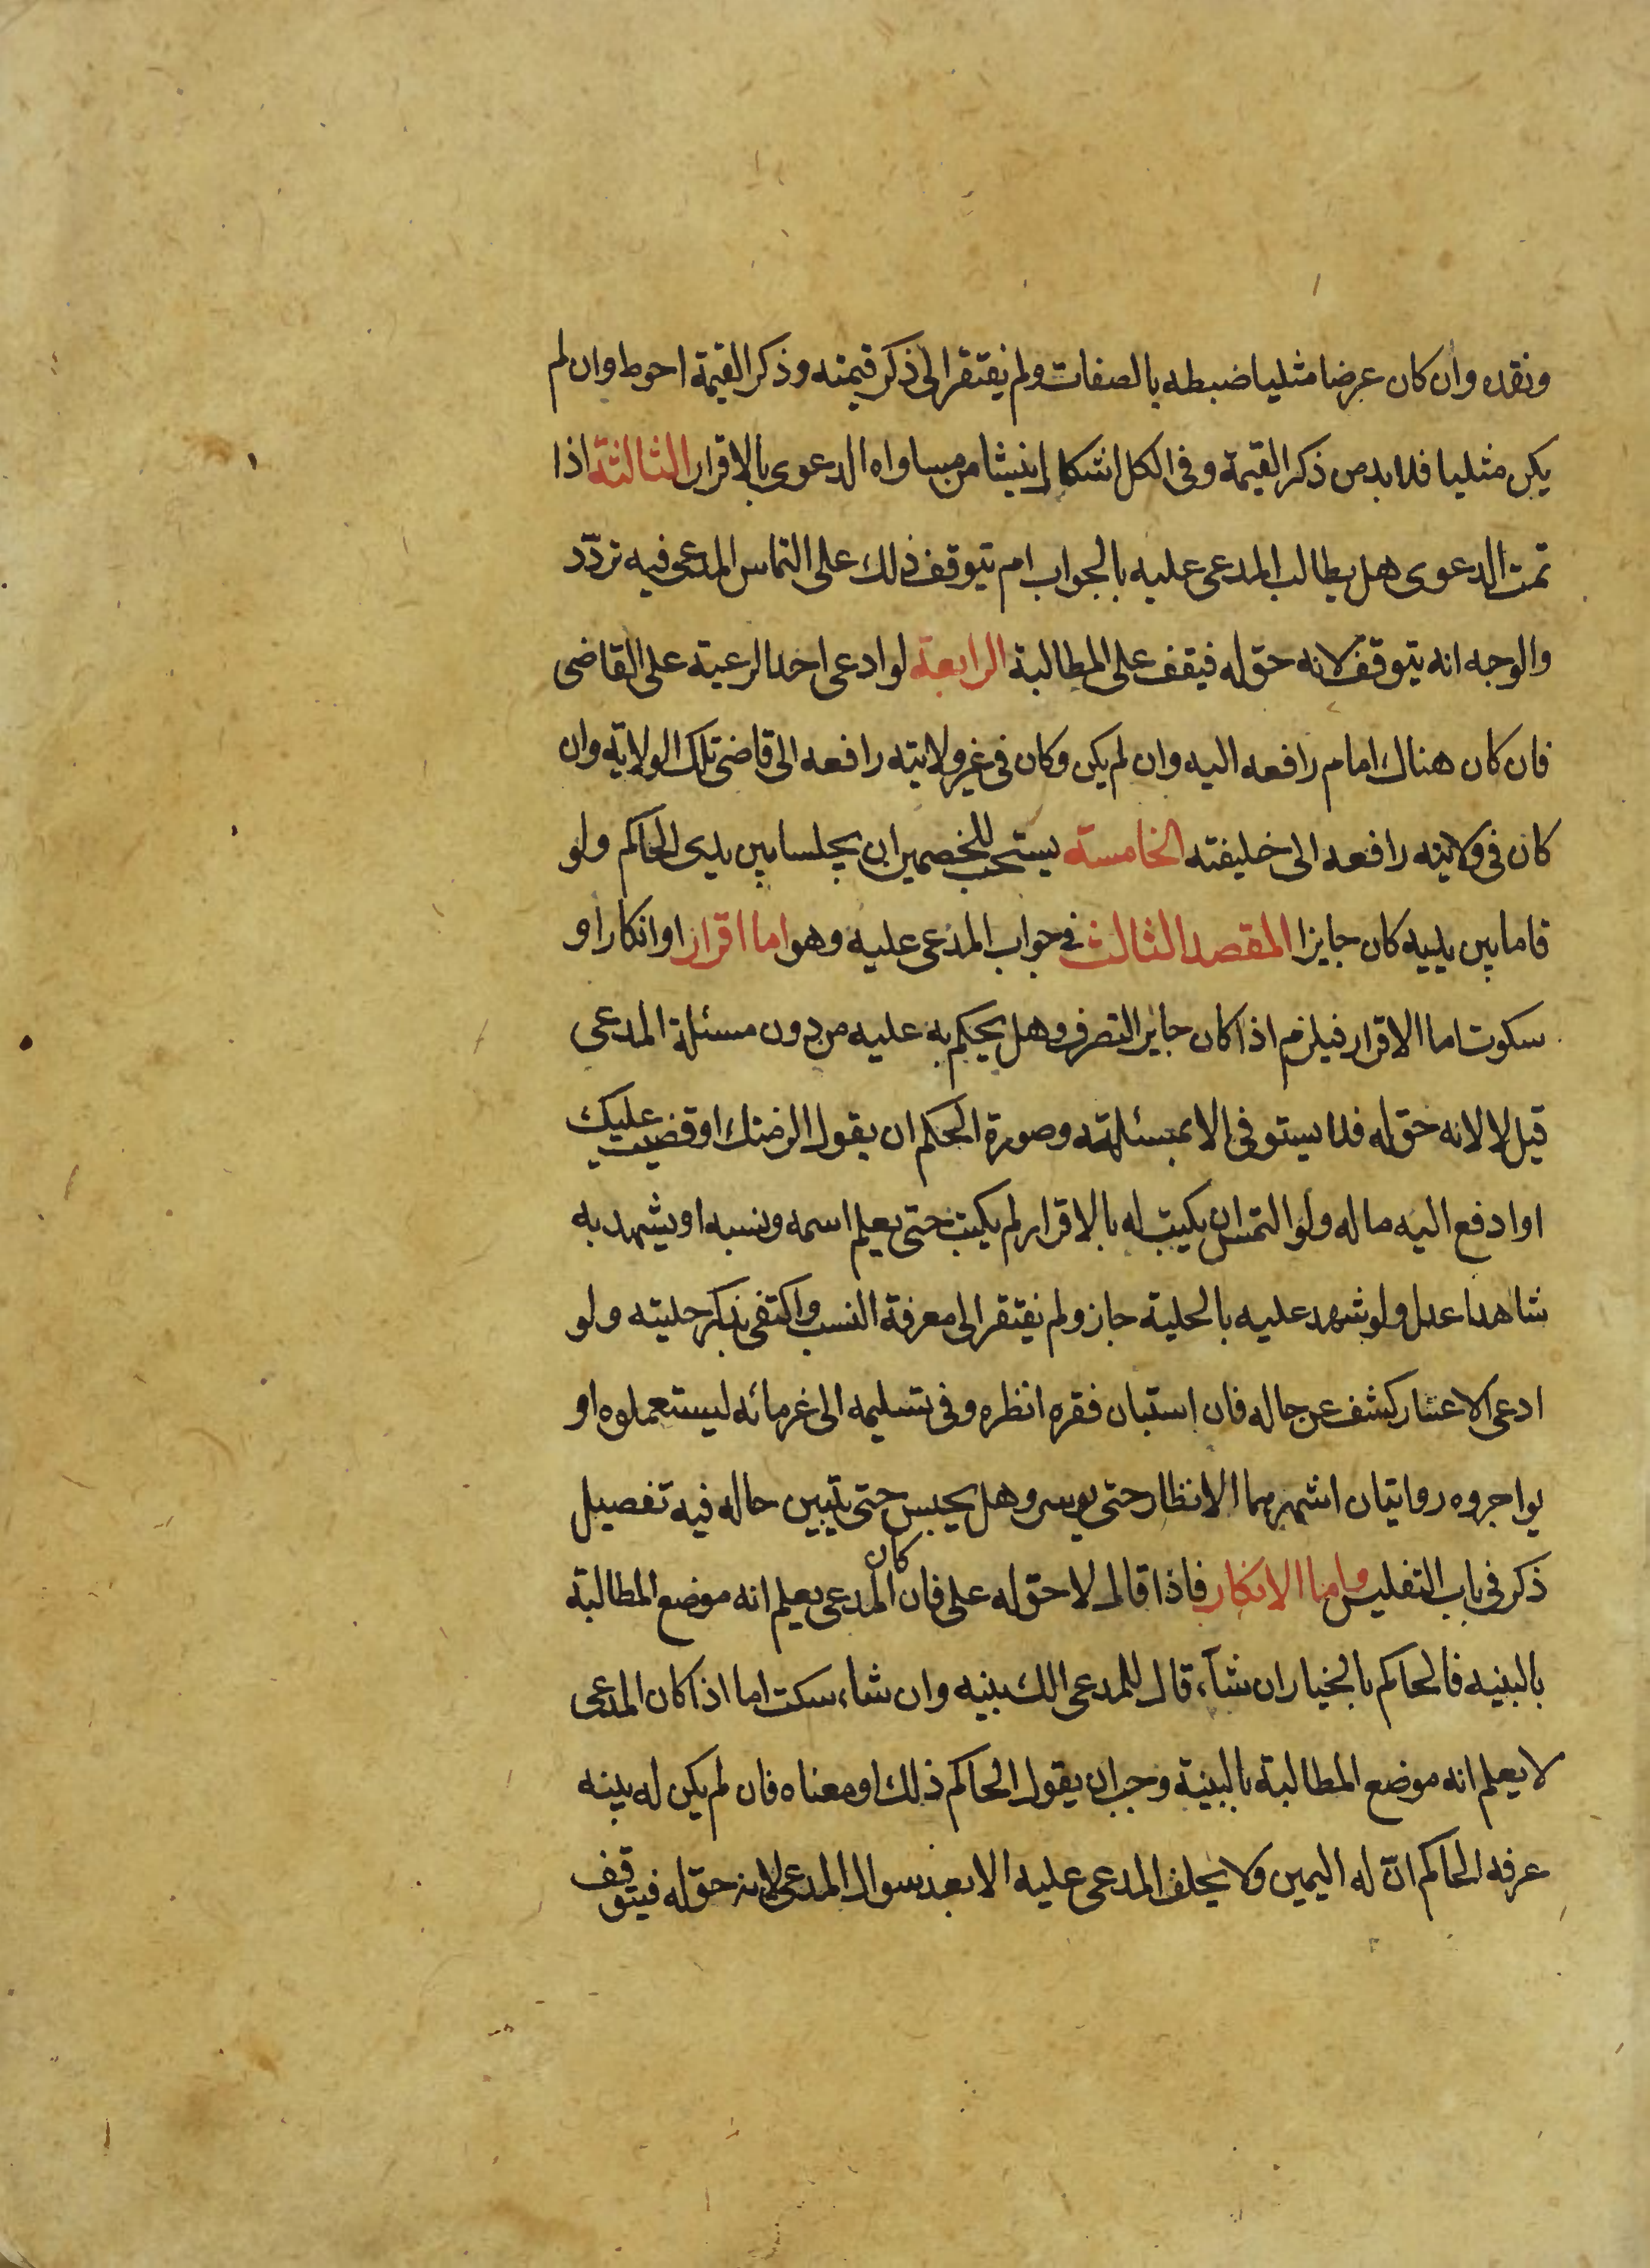 ونقده وان كان عرضا مثليا ضبطه بالصفات ولم يفتقر الى ذكر قيمته وذكر القيمة احوط وان لم
يكن مثليا فلا بد من ذكر القيمة وفي الكل اشكال ينشا من مساواه الدعوى بالاقرار الثالثة اذا
تمت الدعوى هل يطالب المدعى عليه بالجواب ام يتوقف ذلك على التماس المدعى فيه تردّد
والوجه انه يتوقف لانه حق له فيقف على المطالبة الرابعة لو ادعى احد الرعية على القاضى
فان كان هناك امام رافعه اليه وان لم يكن وكان في غير ولايته رافعه الى قاضى تلك الولاية وان
كان في ولايته رافعه الى خليفته الخامسة يستحب للخصمين ان يجلسا بين يدى الحاكم ولو
قاما بين يديه كان جايزا المقصد الثالث في جواب المدعى عليه وهو اما اقرار او انكار او
سكوت اما الاقرار فيلزم اذا كان جايز التصرف وهل يحكم به عليه من دون مسئلة المدعى
قيل لا لانه حق له فلا يستوفى الا بمسئلته وصورة الحكم ان يقول الزمتك او قضيت عليك
او ادفع اليه ماله ولو التمس ان يكتب له بالاقرار لم يكتب حتى يعلم اسمه ونسبه او يشهد به
شاهدا عدل ولو شهد عليه بالحلية جاز ولم يفتقر الى معرفة النسب واكتفى بذكر حليته ولو
ادعى الاعسار كشف عن حاله فان استبان فقره انظره وفي تسليمه الى غرمائه ليستعملوه او
يواجروه روايتان اشهرهما الانظار حتى يوسر وهل يحبس حتى يتبين حاله فيه تفصيل
ذكر في باب التفليس واما الانكار فاذا قال لا حق له على فان كان المدعى يعلم انه موضع المطالبة
بالبينه فالحاكم بالخيار ان شآء قال للمدعى الك بينه وان شاء سكت اما اذا كان المدعى
لا يعلم انه موضع المطالبة بالبينة وجب ان يقول الحاكم ذلك او معناه فان لم يكن له بينه
عرفه الحاكم انّ له اليمين ولا يحلف المدعى عليه الا بعد سوال المدعى لانه حق له فيتوقف